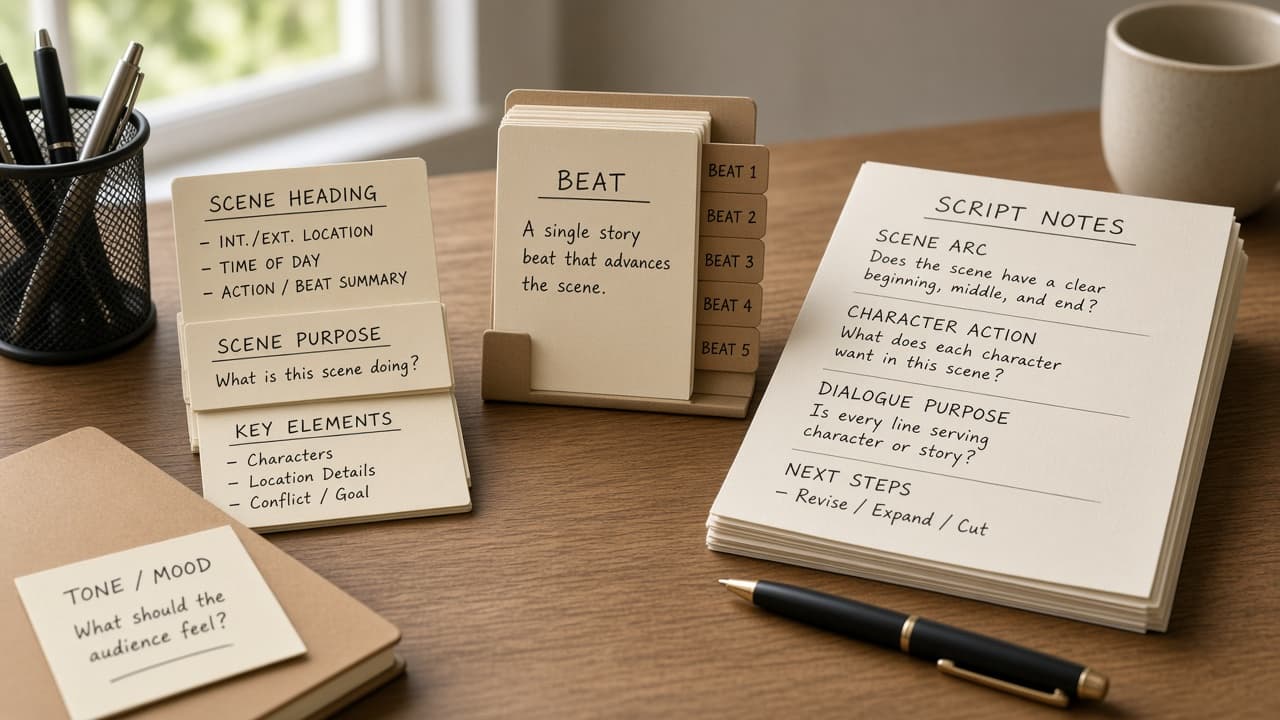 SCENE HEADING
– INT./EXT. LOCATION
– TIME OF DAY
– ACTION / BEAT SUMMARY
SCENE PURPOSE
What is this scene doing?
KEY ELEMENTS
– Characters
– Location Details
– Conflict / Goal
TONE / MOOD
What should the
audience feel?
BEAT
A single story
beat that advances
the scene.
BEAT 1
BEAT 2
BEAT 3
BEAT 4
BEAT 5
SCRIPT NOTES
SCENE ARC
Does the scene have a clear
beginning, middle, and end?
CHARACTER ACTION
What does each character
want in this scene?
DIALOGUE PURPOSE
Is every line serving
character or story?
NEXT STEPS
– Revise / Expand / Cut